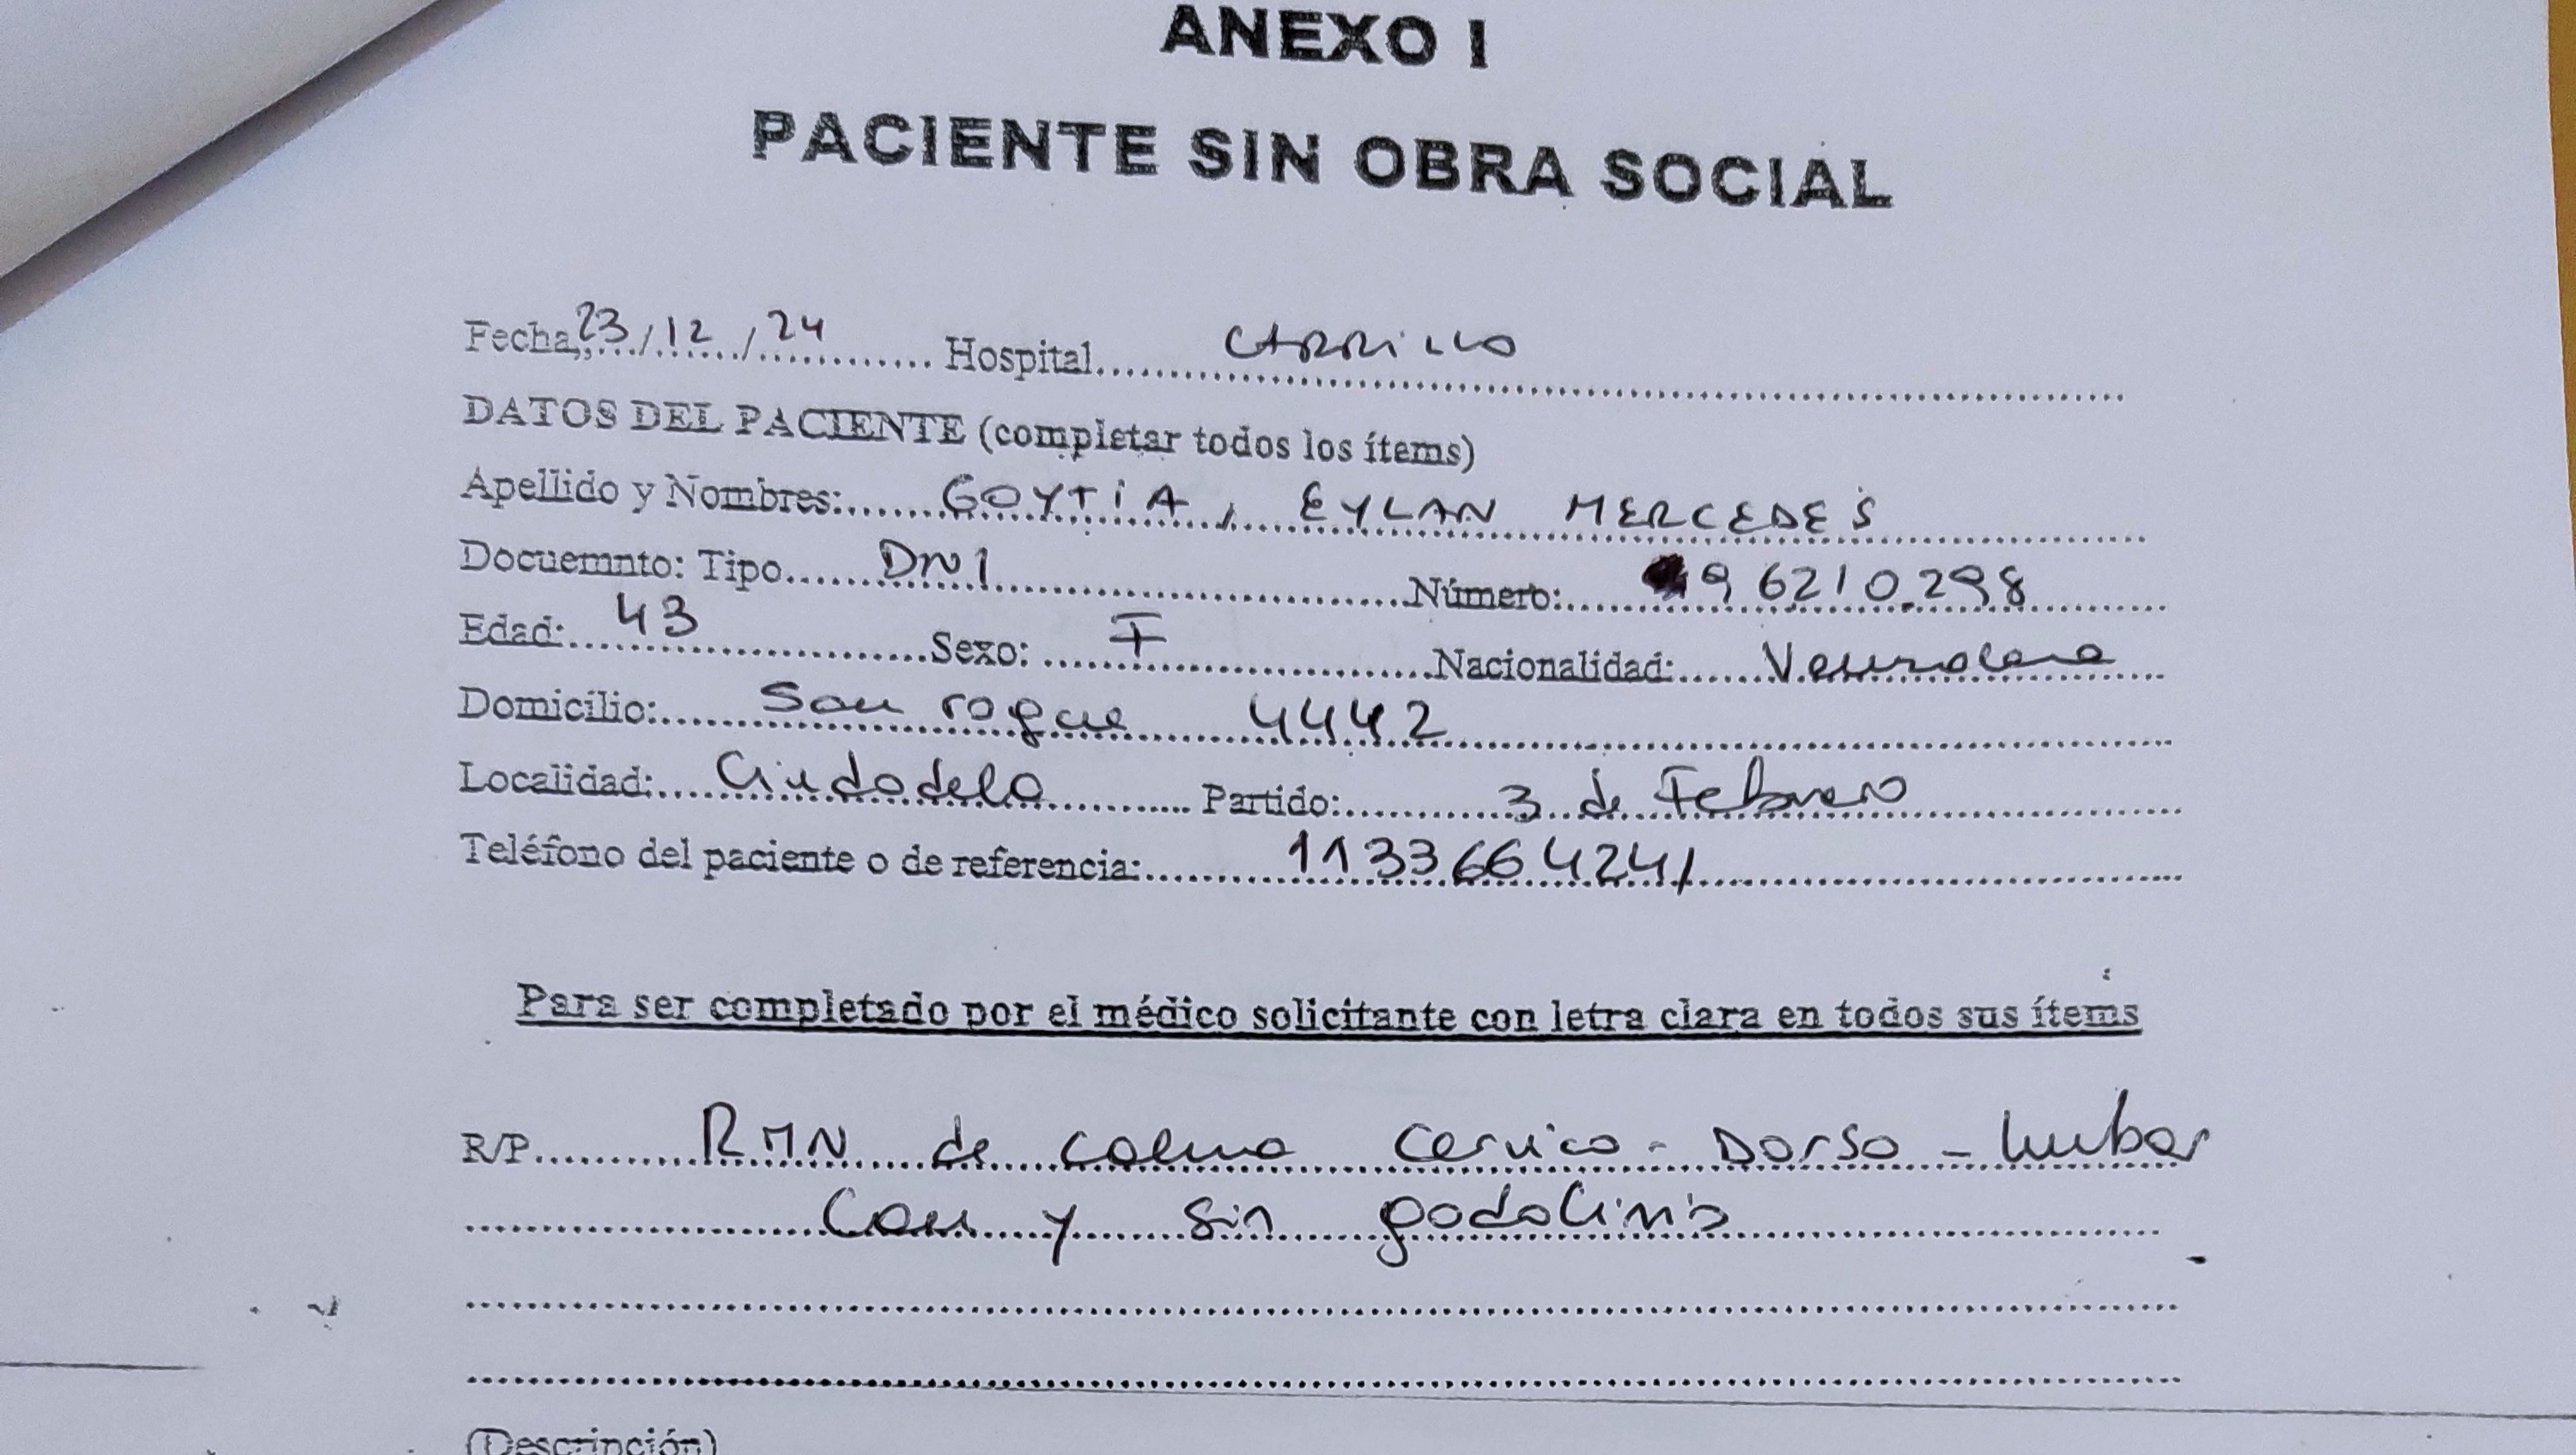 ANEXO I
PACIENTE SIN OBRA SOCIAL
Fecha 23/12/24 Hospital CARRILLO
DATOS DEL PACIENTE (completar todos los ítems)
Apellido y Nombres: GOYTIA, EYLAN MERCEDES
Docuemnto: Tipo DNI Número: 96210.298
Edad: 43 Sexo: F Nacionalidad: Venezolana
Domicilio: San roque 4442
Localidad: Ciudadela Partido: 3 de Febrero
Teléfono del paciente o de referencia: 1133664241
Para ser completado por el médico solicitante con letra clara en todos sus ítems
R/P RMN de columna cervico - Dorso - lumbar
Con y sin gadolinio
(Descripción)